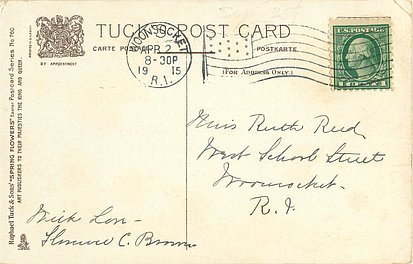 TUCK'S POST CARD
CARTE POSTALE POSTKARTE.
(FOR ADDRESS ONLY.)
BY APPOINTMENT
WOONSOCKET
APR 2
8-30P
1915
R.I.
U.S. POSTAGE
Raphael Tuck & Sons' "SPRING FLOWERS" Easter Postcard Series No.
ART PUBLISHERS TO THEIR MAJESTIES THE KING AND QUEEN.
Miss Ruth Reid
West School Street
Woonsocket
R. I.
With Lov-
Florence C. Brown